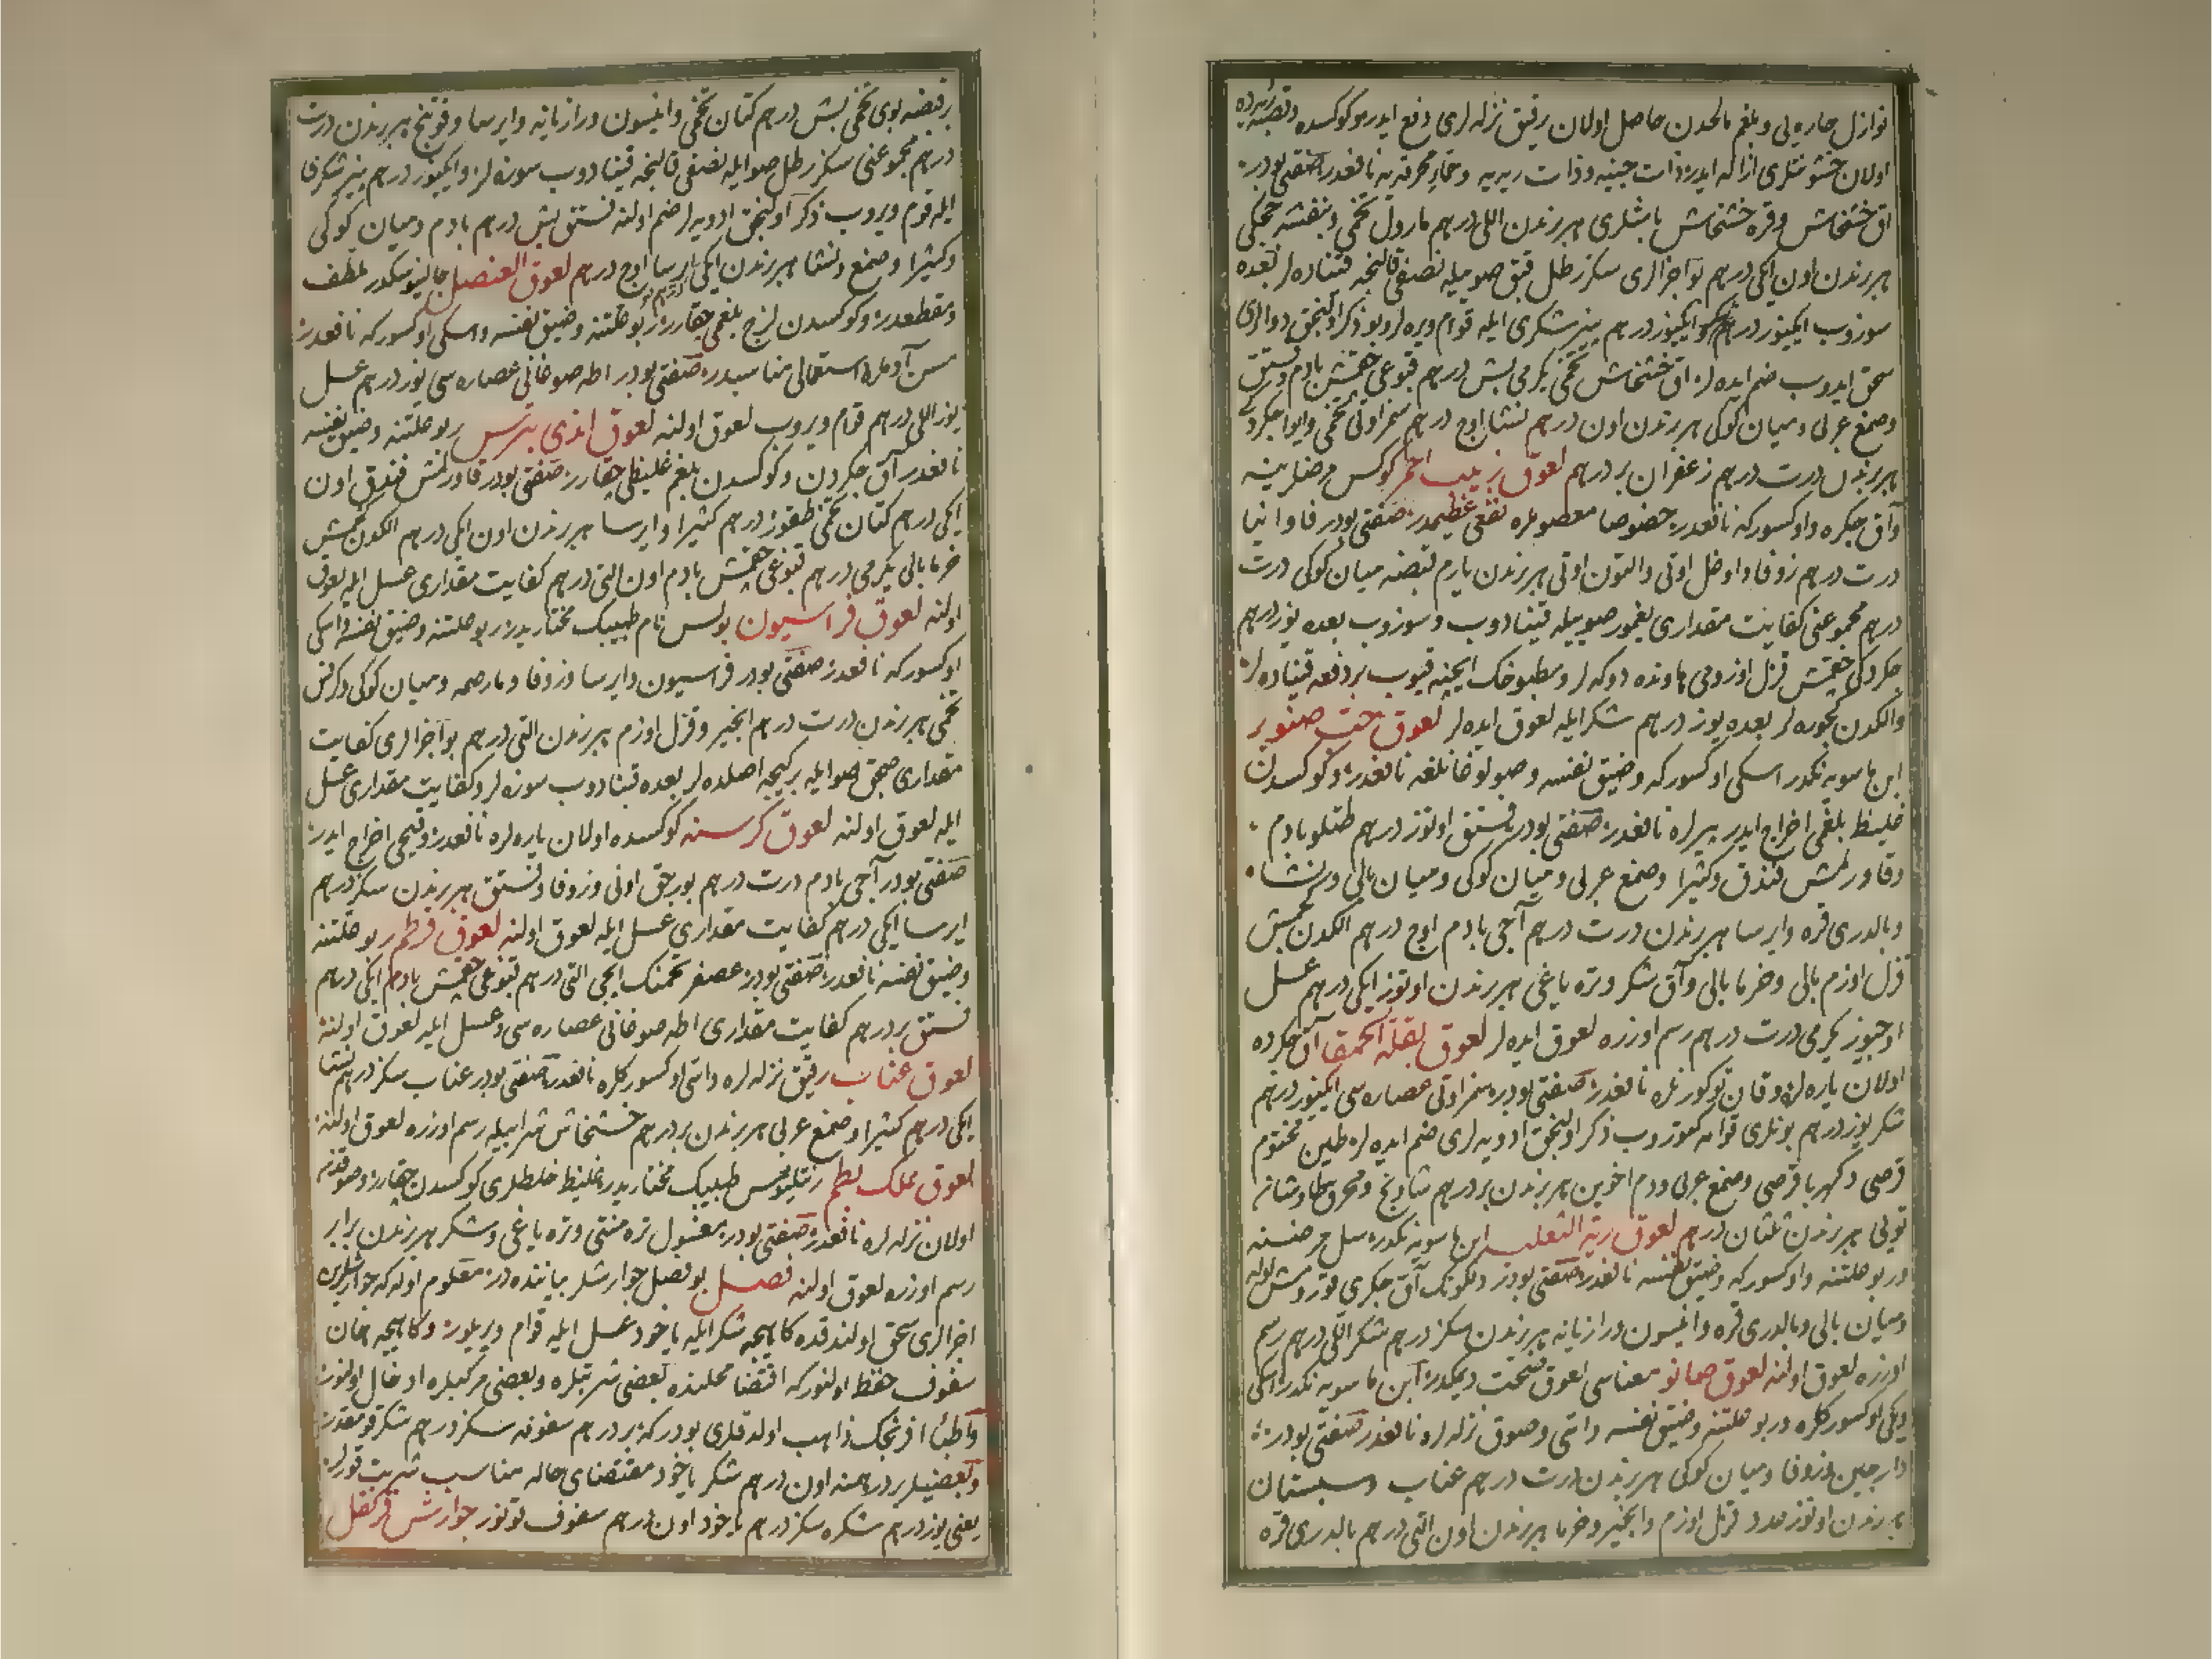 نوازل حاره یی و بلغم مالحدن حاصل اولان رقیق نزله لری دفع ایدر و کوکسده و قصبه ریه ده
اولان خشونتلری ازاله ایدر ذات جنبه و ذات ریه یه و حمای محرقه یه نافعدر صنعتی بودر
اق خشخاش و قره خشخاش باشلری هر برندن اللی درهم مارول تخمی و بنفشه چچکی
هر برندن اون ایکی درهم بو اجزالری سکز رطل قیق صوییله نصفی قالنجه قیناده لر بعده
سوزوب ایکیوز درهم ایکیوز درهم پنیر شکری ایله قوام ویره لر و بو ذکر اولنجق دوالری
سحق ایدوب ضم ایده لر اق خشخاش تخمی یکرمی بش درهم قبوغی چقمش بادم و فستق
و صمغ عربی و میان کوکی هر برندن اون درهم نشا اوچ درهم سمز اوتی تخمی و ایوا چکردکی
هر برندن درت درهم زعفران بر درهم لعوق زبیب احمر کوکس مرضلرینه
و آق جکره و اوکسورکه نافعدر خصوصا معصوملره نفعی عظیمدر صنعتی بودر فاوانیا
درت درهم زوفا و اوخل اوتی و التون اوتی هر برندن یارم قبضه میان کوکی درت
درهم مجموعنی کفایت مقداری یغمور صوییله قینادوب و سوزوب بعده یوز درهم
چکردکی چیقمش قزل اوزومی هاونده دوکه لر و مطبوخک ایچنه قیوب بر دفعه قیناده لر
و الکدن کچوره لر بعده یوز درهم شکر ایله لعوق ایده لر لعوق حب صنوبر
ابن ماسویه نکدر اسکی اوکسورکه و ضیق نفسه و صولوغانلغه نافعدر و کوکسدن
غلیظ بلغمی اخراج ایدر پیرلره نافعدر صنعتی بودر فستق اوتوز درهم طتلو بادم
و قاورلمش فندق و کثیرا و صمغ عربی و میان کوکی و میان بالی و نشا
و بالدری قره و ایرسا هر برندن درت درهم آجی بادم اوچ درهم الکدن کچمش
قزل اوزم بالی و خرما بالی و آق شکر و تره یاغی هر برندن اوتوز ایکی درهم عسل
اوچیوز یکرمی درت درهم رسم اوزره لعوق ایده لر لعوق بقلة الحمقا آق جکرده
اولان یاره لره و قان توکورنلره نافعدر صنعتی بودر سمز اوتی عصاره سی ایکیوز درهم
شکر یوز درهم بونلری قوامه کتوروب ذکر اولنجق ادویه لری ضم ایده لر طین مختوم
قرصی و کهربا قرصی و صمغ عربی و دم اخوین هر برندن بر درهم شادنج و محروق طاوشان
تویی هر برندن ثلثان درهم لعوق ریة الثعلب ابن ماسویه نکدر سل مرضنه
و ربو علتنه و اوکسورکه و ضیق نفسه نافعدر صنعتی بودر دلکونک آق جکری قورومش اوله
و میان بالی و بالدری قره و انیسون و رازیانه هر برندن سکز درهم شکر اللی درهم رسم
اوزره لعوق اولنه لعوق صمانو معناسی لعوق صحت دیمکدر ابن ماسویه نکدر اسکی
و یکی اوکسورکلره و ربو علتنه و ضیق نفسه و اتی و صوق نزله لره نافعدر صنعتی بودر
دارچین و زوفا و میان کوکی هر برندن درت درهم عناب و سبستان
هر برندن اوتوز عدد قزل اوزم و انجیر و خرما هر برندن اون التی درهم بالدری قره
بر قبضه بوی تخمی بش درهم کتان تخمی و انیسون و رازیانه و ایرسا و فوتنج هر برندن درت
درهم مجموعنی سکز رطل صو ایله نصفی قالنجه قینادوب سوزه لر و ایکیوز درهم پنیر شکری
ایله قوام ویروب ذکر اولنجق ادویه لر ضم اولنه فستق بش درهم بادم و میان کوکی
و کثیرا و صمغ و نشا هر برندن ایکی ایرسا اوچ درهم لعوق العنصل جالینوسکدر ملطف
و مقطعدر و کوکسدن لزج بلغمی چقارر ربو علتنه و ضیق نفسه و اسکی اوکسورکه نافعدر
مسن آدملره استعمالی مناسبدر صنعتی بودر اطه صوغانی عصاره سی یوز درهم عسل
یوز اللی درهم قوام ویروب لعوق اولنه لعوق اندی ربو علتنه و ضیق نفسه
نافعدر آق جکردن و کوکسدن بلغم غلیظی چقارر صنعتی بودر قاورلمش فندق اون
ایکی درهم کتان تخمی طقوز درهم کثیرا و ایرسا هر برندن اون ایکی درهم الکدن کچمش
خرما بالی یکرمی درهم قبوغی چقمش بادم اون التی درهم کفایت مقداری عسل ایله لعوق
اولنه لعوق فراسیون بولس نام طبیبک مختاریدر ربو علتنه و ضیق نفسه و اسکی
اوکسورکه نافعدر صنعتی بودر فراسیون و ایرسا و زوفا و مارصمه و میان کوکی و کرفس
تخمی هر برندن درت درهم انجیر و قزل اوزم هر برندن التی درهم بو اجزالری کفایت
مقداری صیجق صو ایله بر کیجه اصلده لر بعده قینادوب سوزه لر و کفایت مقداری عسل
ایله لعوق اولنه لعوق کرسنه کوکسده اولان یاره لره نافعدر و قیحی اخراج ایدر
صنعتی بودر آجی بادم درت درهم بورجق اونی و زوفا و فستق هر برندن سکز درهم
ایرسا ایکی درهم کفایت مقداری عسل ایله لعوق اولنه لعوق قرطم ربو علتنه
و ضیق نفسه نافعدر صنعتی بودر عصفر تخمنک ایچی التی درهم قبوغی چقمش بادم ایکی درهم
فستق بر درهم کفایت مقداری اطه صوغانی عصاره سی و عسل ایله لعوق اولنه
لعوق عناب رقیق نزله لره و اتی اوکسورکلره نافعدر صنعتی بودر عناب سکز درهم نشا
ایکی درهم کثیرا و صمغ عربی هر برندن بر درهم خشخاش شرابیله رسم اوزره لعوق اولنه
لعوق علک بطم طبیبک مختاریدر غلیظ خلطلری کوکسدن چقارر و صوقدن
اولان نزله لره نافعدر صنعتی بودر مغسول تره منتی و تره یاغی و شکر هر برندن برابر
رسم اوزره لعوق اولنه فصل بو فصل جوارشلر بیاننده در معلوم اوله که جوارشلرین
اجزالری سحق اولندقده کاهیجه شکر ایله یاخود عسل ایله قوام ویریلور و کاهیجه همان
سفوف حفظ اولنور که اقتضا محلنده بعضی شربتلره و بعضی مرکبلره ادخال اولنور
و اطباء افرنجک ذاهب اولدقلری بودر که بر درهم سفوفه سکز درهم شکر قومقدر
و بعضیلر بر درهمنه اون درهم شکر یاخود مقتضای حاله مناسب شربت قورلر
یعنی یوز درهم شکره سکز درهم یاخود اون درهم سفوف قونور جوارش قرنفل